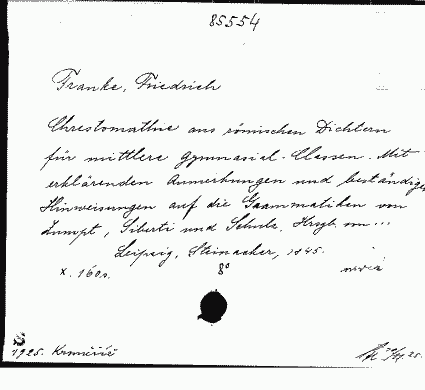 85554
Franke, Friedrich
Chrestomathie aus römischen Dichtern
für mittlere Gymnasial-Classen. Mit
erklärenden Anmerkungen und beständigen
Hinweisungen auf die Grammatiken von
Zumpt, Siberti und Schulz. Hrsgb. von ...
Leipzig, Steinacker, 1845.
X. 160 s. 8°
S
1925.